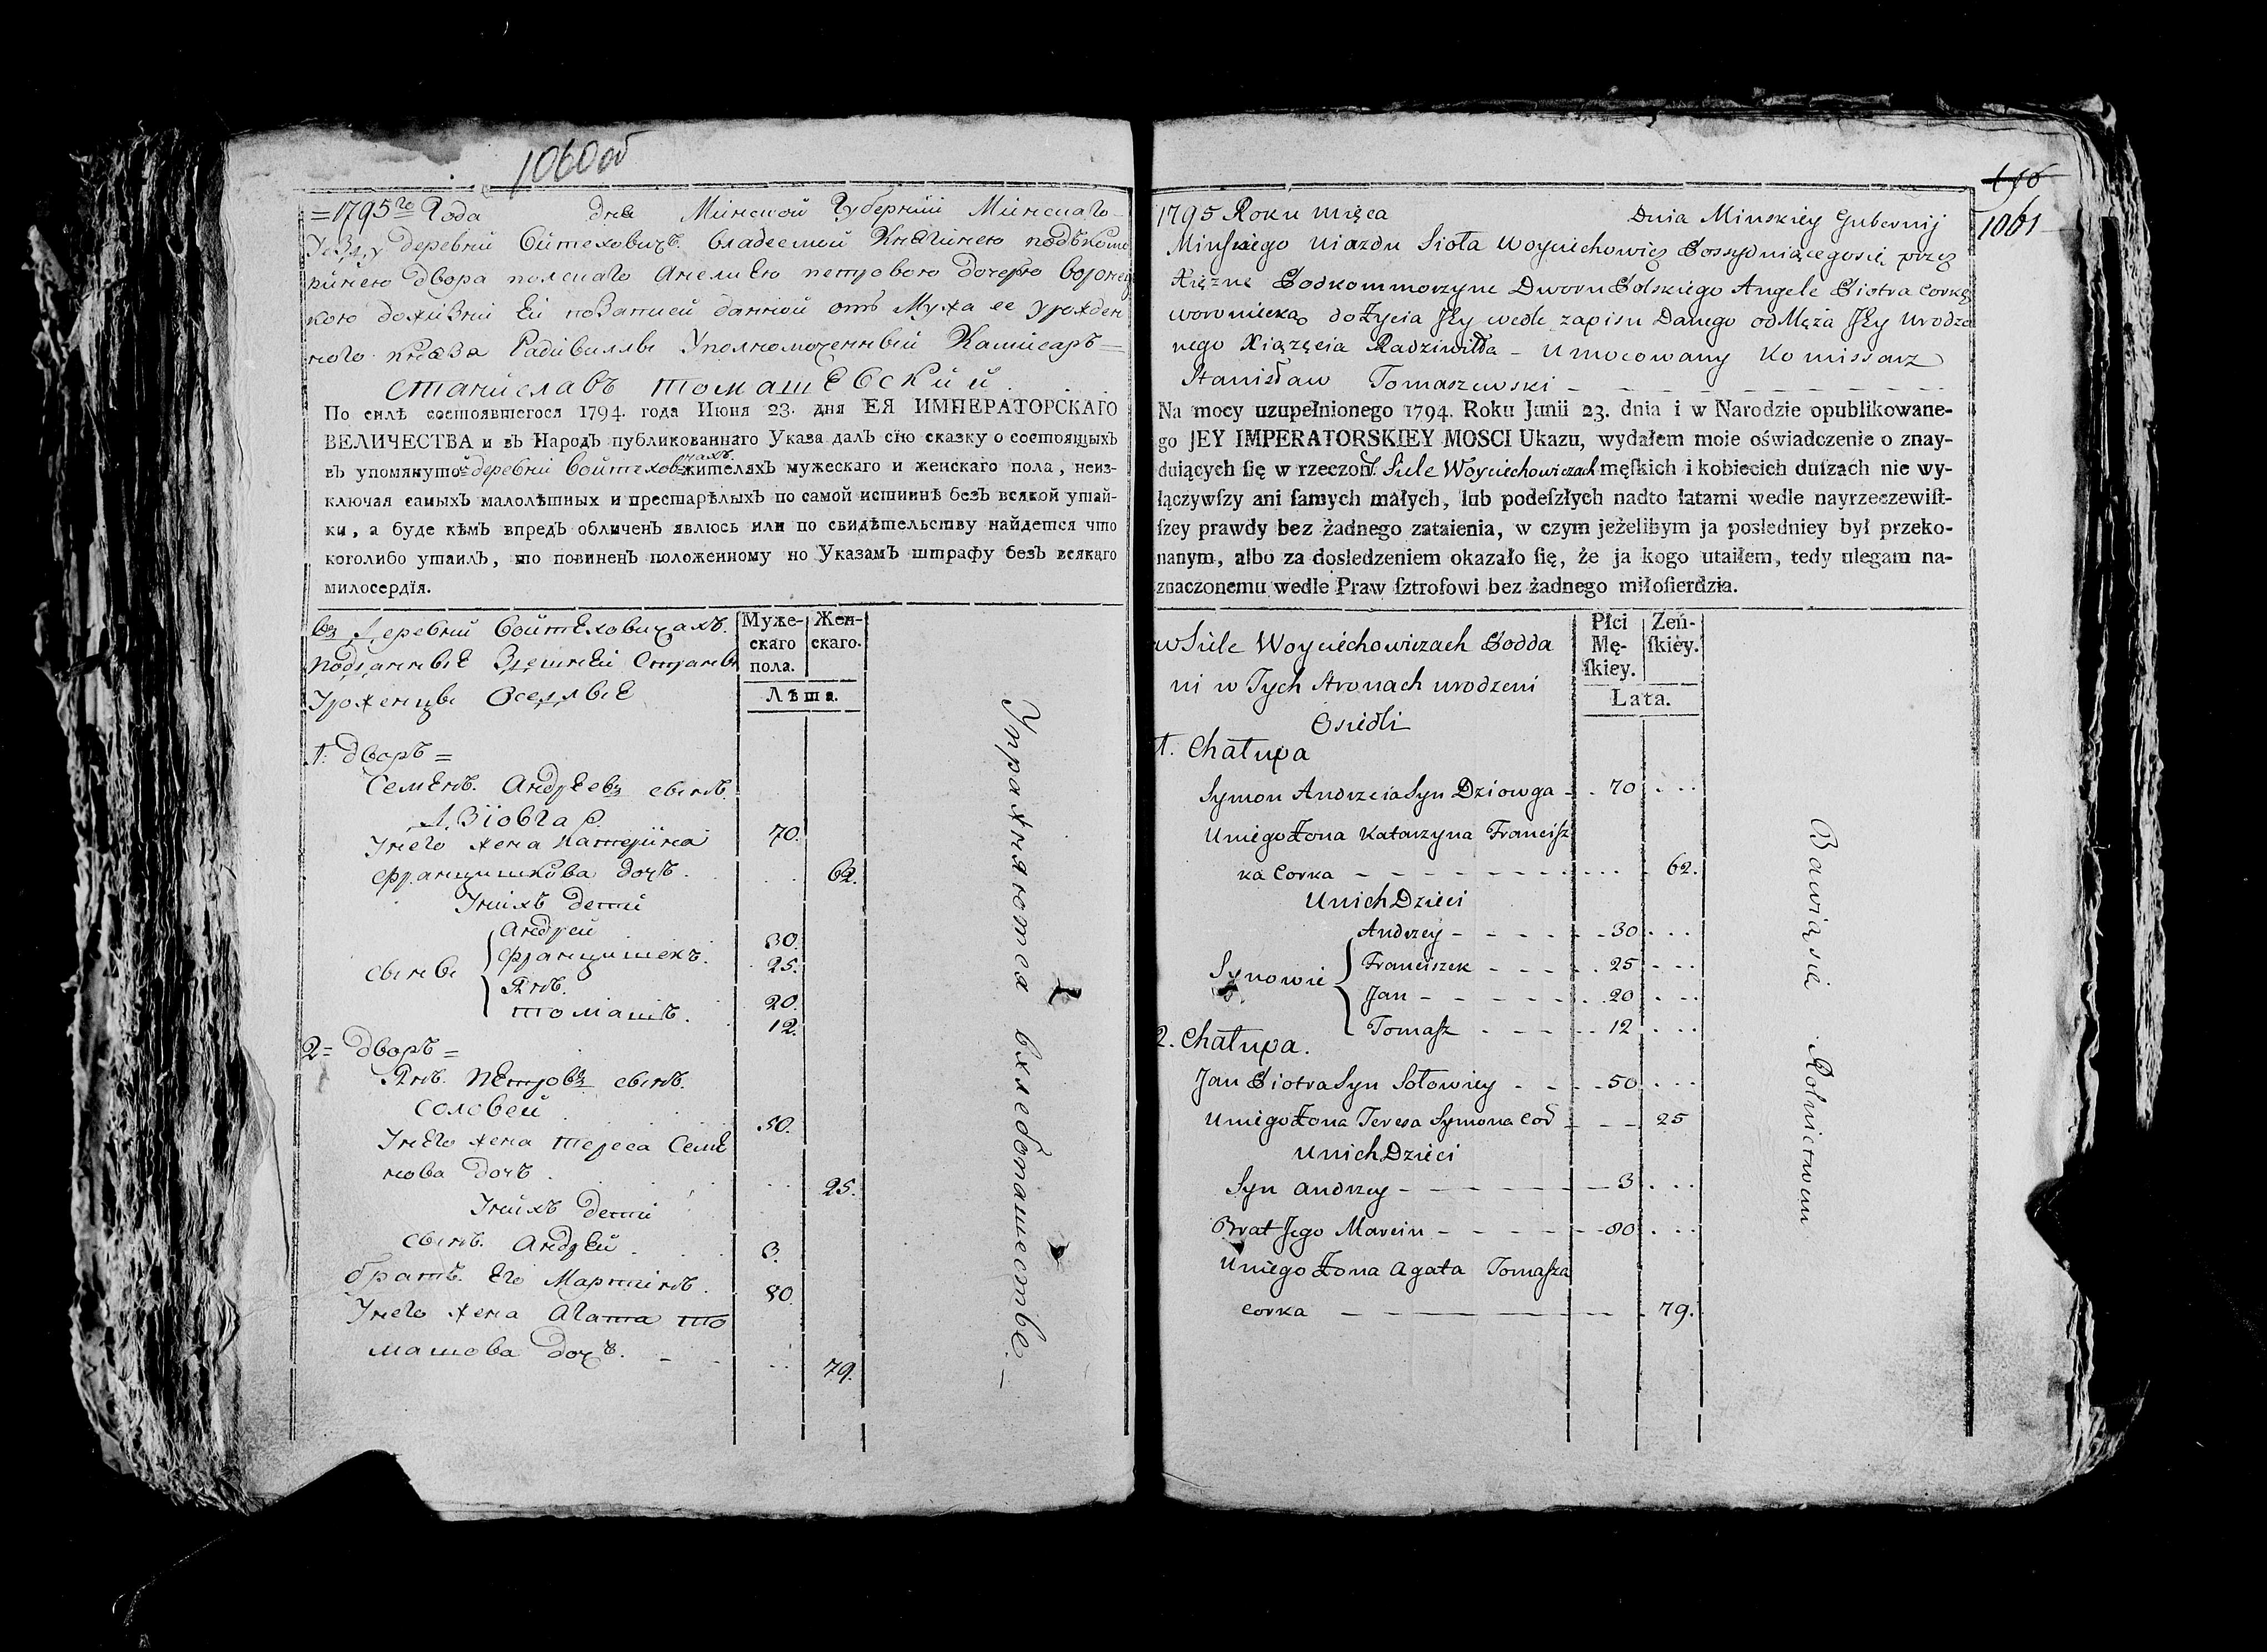 1060об
=1795го Года дня Минской Губернии Минскаго
Уезду деревни Войтеховичъ владеемой Княгинею подъкомо
ринею Двора полскаго Анелиею петровою дочерю воронец
кою дожизни Ей позаписи данной отъ Мужа ее урожден
ного князя Радивиллы Уполномоченный Комисаръ=
Станиславъ томашевский
По силѣ состоявшегося 1794. года Июня 23. дня ЕЯ ИМПЕРАТОРСКАГО
ВЕЛИЧЕСТВА и въ Народъ публикованнаго Указа далъ сїю сказку о состоящыхъ
въ упомянутой деревни Войтеховичахъ жителяхъ мужескаго и женскаго пола, неиз-
ключая самыхъ малолѣтныхъ и престарѣлыхъ по самой истиннѣ безъ всякой утай-
ки, а буде кѣмъ впредъ обличенъ явлюсь или по свидѣтельству найдется что
коголибо утаилъ, то повиненъ положенному по Указамъ штрафу безъ всякаго
милосердїя.
въ Деревни Войтеховичахъ
подданные Здешней Страны
Уроженцы Оседлые
Муже-
скаго
пола.
Жен-
скаго.
Лѣта.
1. Дворъ=
Семенъ Андреевъ сынъ
Дзіовга 70.
Унего жена Катерина
францишкова дочъ 62.
Унихъ дети
сыны
Андрей 30.
францишекъ 25.
Янъ 20.
томашъ 12.
2= Дворъ=
Янъ Петровъ сынъ
Соловей 50.
Унего жена тереса Семе
нова дочъ 25.
Унихъ дети
сынъ Андрей 3.
братъ Его Мартинъ 80.
Унего жена Агата то
машова дочъ 79.
Упражняются вхлебопашестве.
1061
1795 Roku Mięca Dnia Minskiey Gubernij
Minskiego Uiazdu Siola Woyciechowicz Possyduiącegosię przez
Xiężne Podkommorzyne Dworu Polskiego Angele Piotra Corkę
woroniecką do Zycia Jey wedle zapisu Danego od Męża Jey Urodzo
nego Xiązęcia Radziwiłła - Umocowany Komissarz
Stanisław Tomaszewski
Na mocy uzupełnionego 1794. Roku Junii 23. dnia i w Narodzie opublikowane-
go JEY IMPERATORSKIEY MOSCI Ukazu, wydałem moie oświadczenie o znay-
duiących ſię w rzeczon. Siele Woyciechowiczach męſkich i kobiecich duſzach nie wy-
łączywſzy ani ſamych małych, lub podeſzłych nadto łatami wedle nayrzeczewiſt-
ſzey prawdy bez żadnego zataienia, w czym jeżelibym ja posledniey był przeko-
nanym, albo za dosledzeniem okazało ſię, że ja kogo utaiłem, tedy ulegam na-
znaczonemu wedle Praw ſztrofowi bez żadnego miłoſierdzia.
w Siele Woyciechowiczach Podda
ni w Tych Stronach urodzeni
Osiedli
Płci
Mę-
ſkiey.
Zeń-
ſkiey.
Lata.
1. Chałupa
Symon Andrzeia Syn Dziowga 70
U niego Żona Katarzyna Francisz
ka Corka 62.
U nich Dzieci
Synowie
Andrzey 30
Franciszek 25
Jan 20
Tomasz 12
2. Chałupa.
Jan Piotra Syn Sołowiey 50
U niego Żona Teresa Symona Cor 25
U nich Dzieci
Syn Andrzey 3
Brat Jego Marcin 80
U niego Żona Agata Tomasza
corka 79.
Bawią sie Rolnictwem